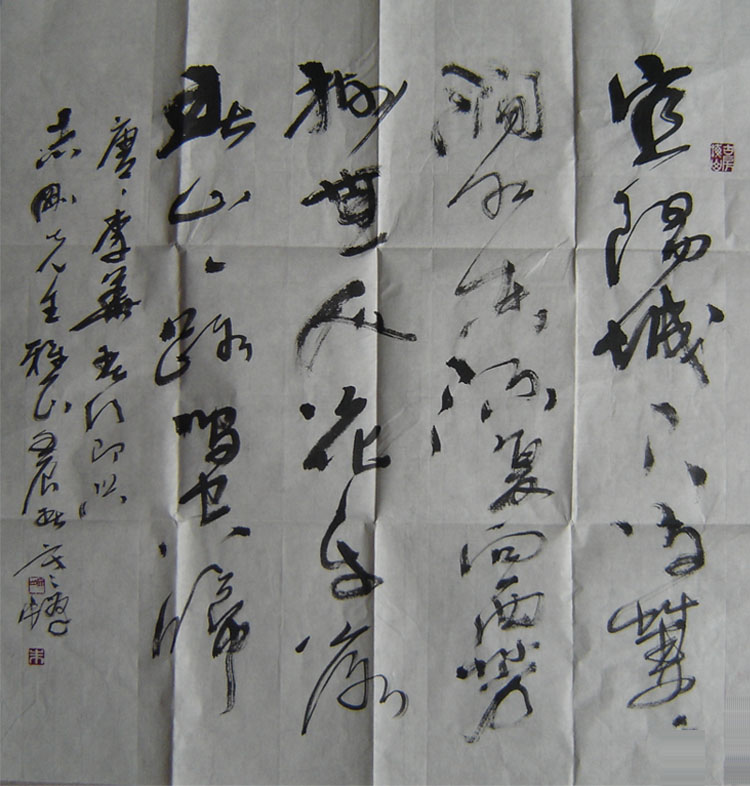 宜陽城下草萋〻
澗水东流复向西芳
树無人花自落
春山一路鸟空啼
唐、李華春行即兴
志刚先生雅正壬辰秋